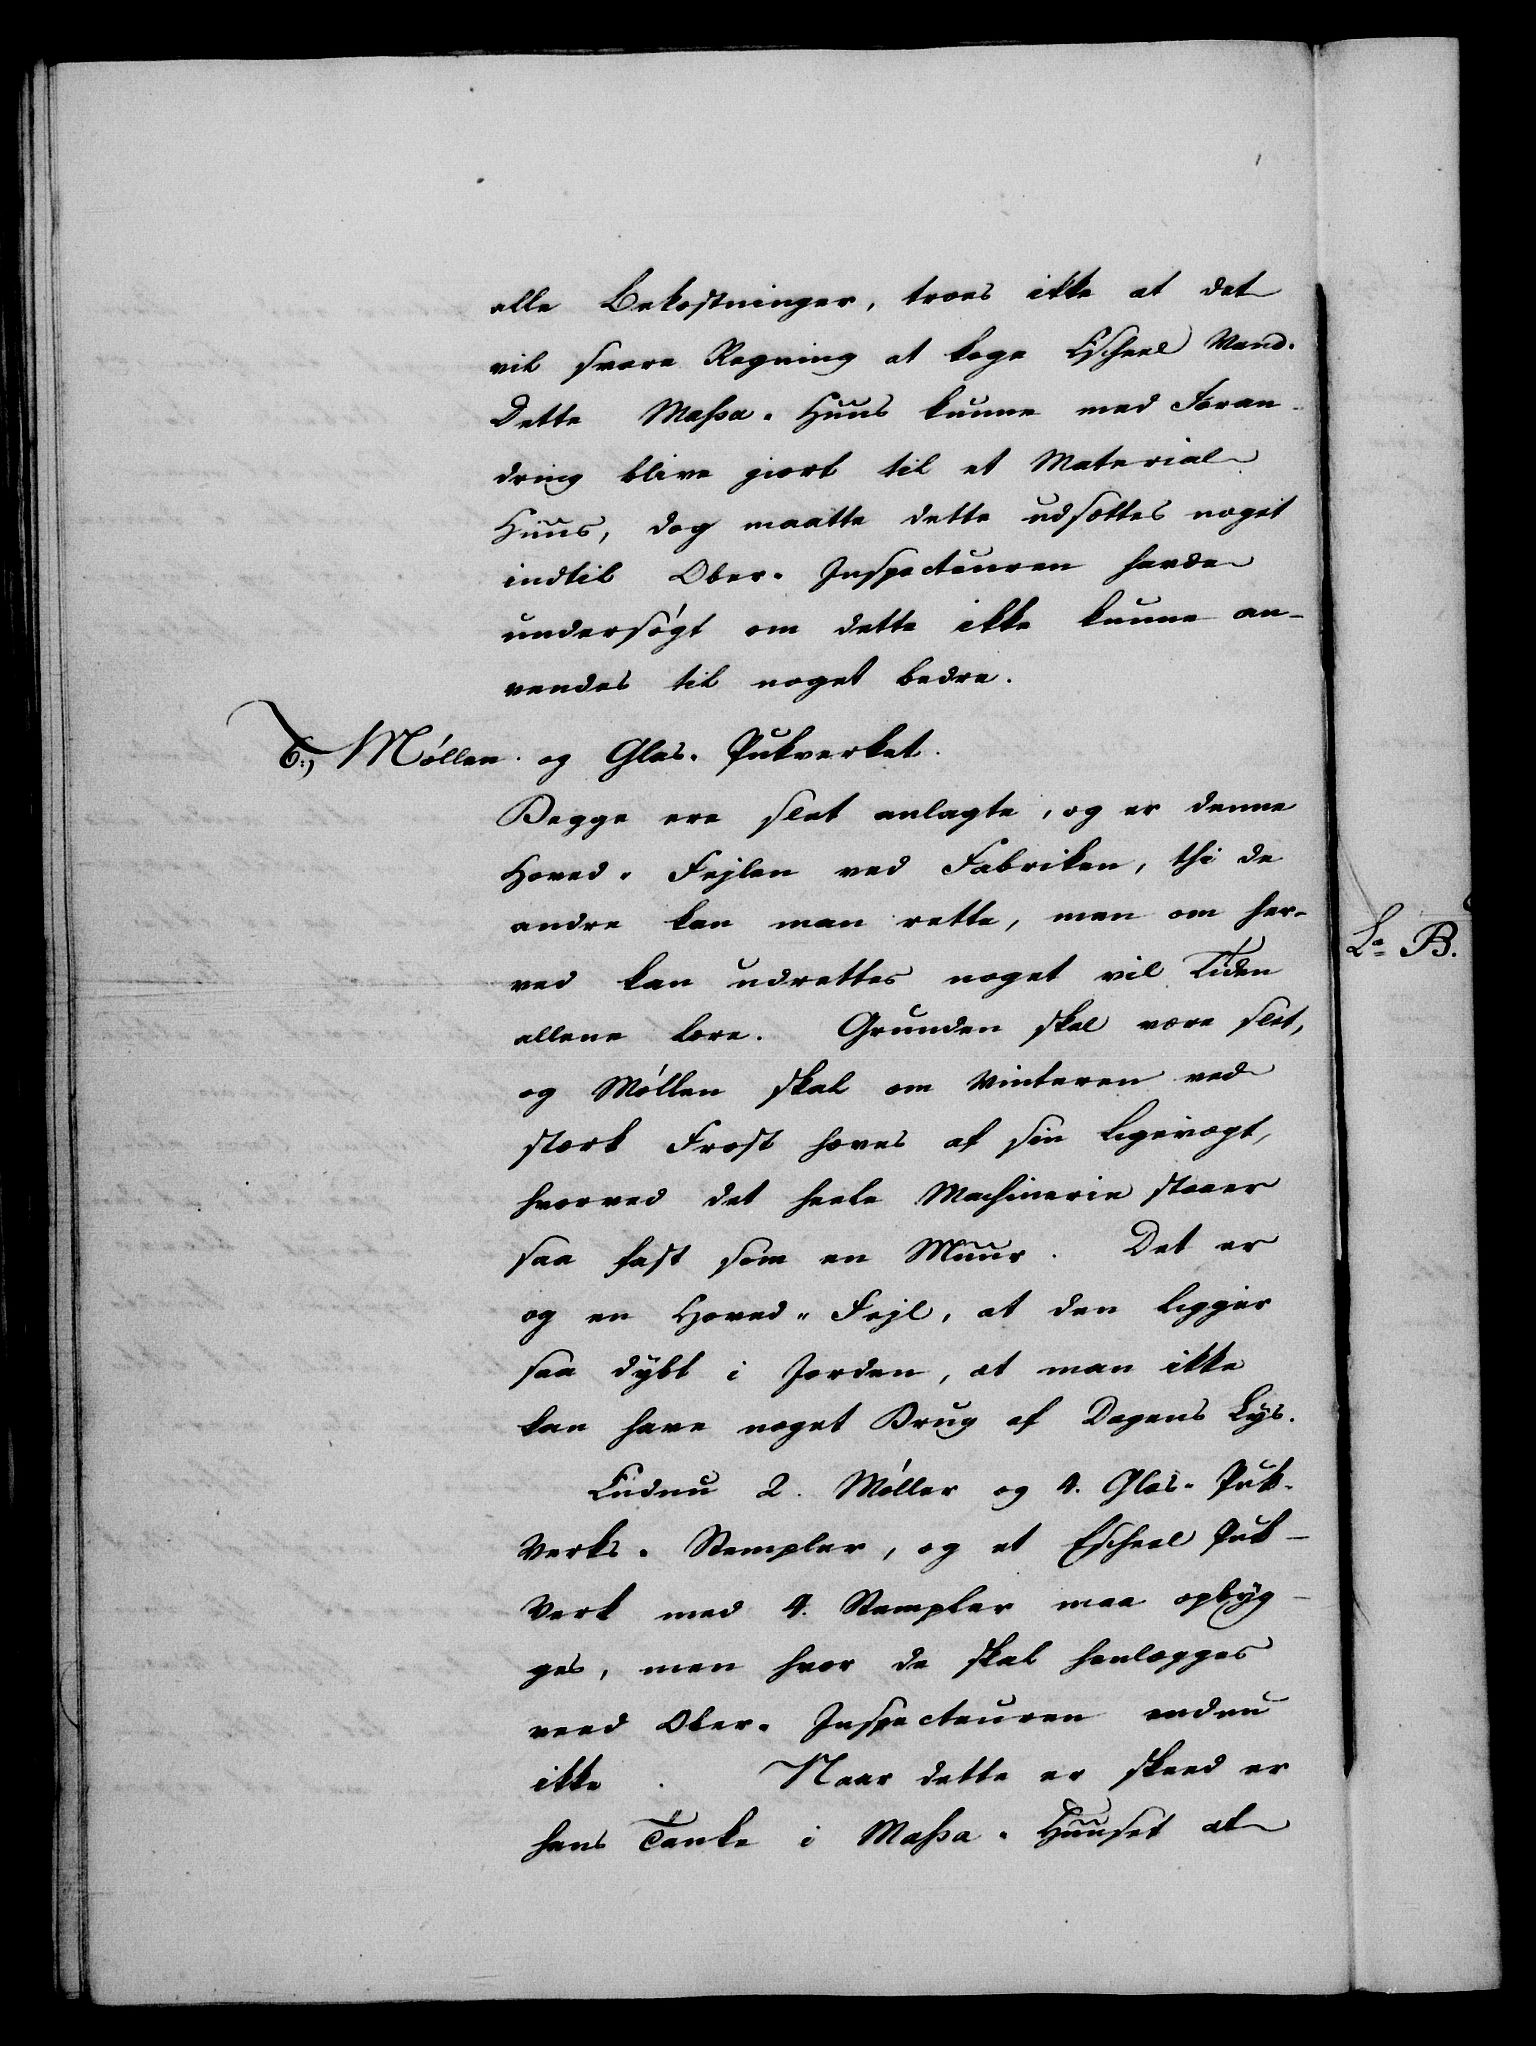 alle Bekostninger, troes ikke at det
vil svare Regning at koge Escheel Vand.
Dette Massa-Huus kunne med Foran-
dring blive giort til et Material
Huus, dog maatte dette udsættes noget
indtil Ober-Inspecteuren havde
undersøgt om dette ikke kunne an-
vendes til noget bedre.
6., Møllen og Glas-Pukverket.
Begge ere slet anlagte, og er denne
Hoved-Fejlen ved Fabriken, thi de
andre kan man rette, men om her-
ved kan udrettes noget vil Tiden
allene lære. Grunden skal være slet,
og Møllen skal om Vinteren ved
stærk Frost hæves af sin Ligevægt,
hvorved det heele Machinerie staaer
saa fast som en Muur. Det er
og en Hoved-Fejl, at den ligger
saa dybt i Jorden, at man ikke
kan have noget Brug af Dagens Lys.
Endnu 2. Møller og 4. Glas-Puk-
Verks-Stempler, og et Escheel Puk-
Verk med 4. Stempler maa opbyg-
ges, men hvor de skal henlægges
veed Ober-Inspecteuren endnu
ikke. Naar dette er skeed er
hans Tanke i Massa-Huuset at
La B.